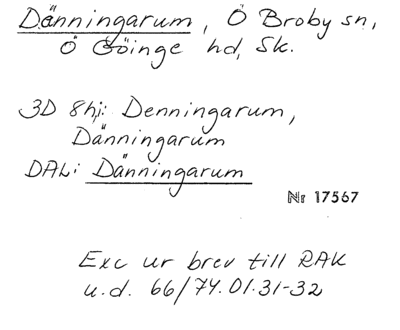 Dänningarum, Ö Broby sn,
Ö Göinge hd, Sk.
3D 8hj: Denningarum,
Dänningarum
DAL: Dänningarum
Nr 17567
Exc ur brev till RAK
u.d. 66/74.01.31-32